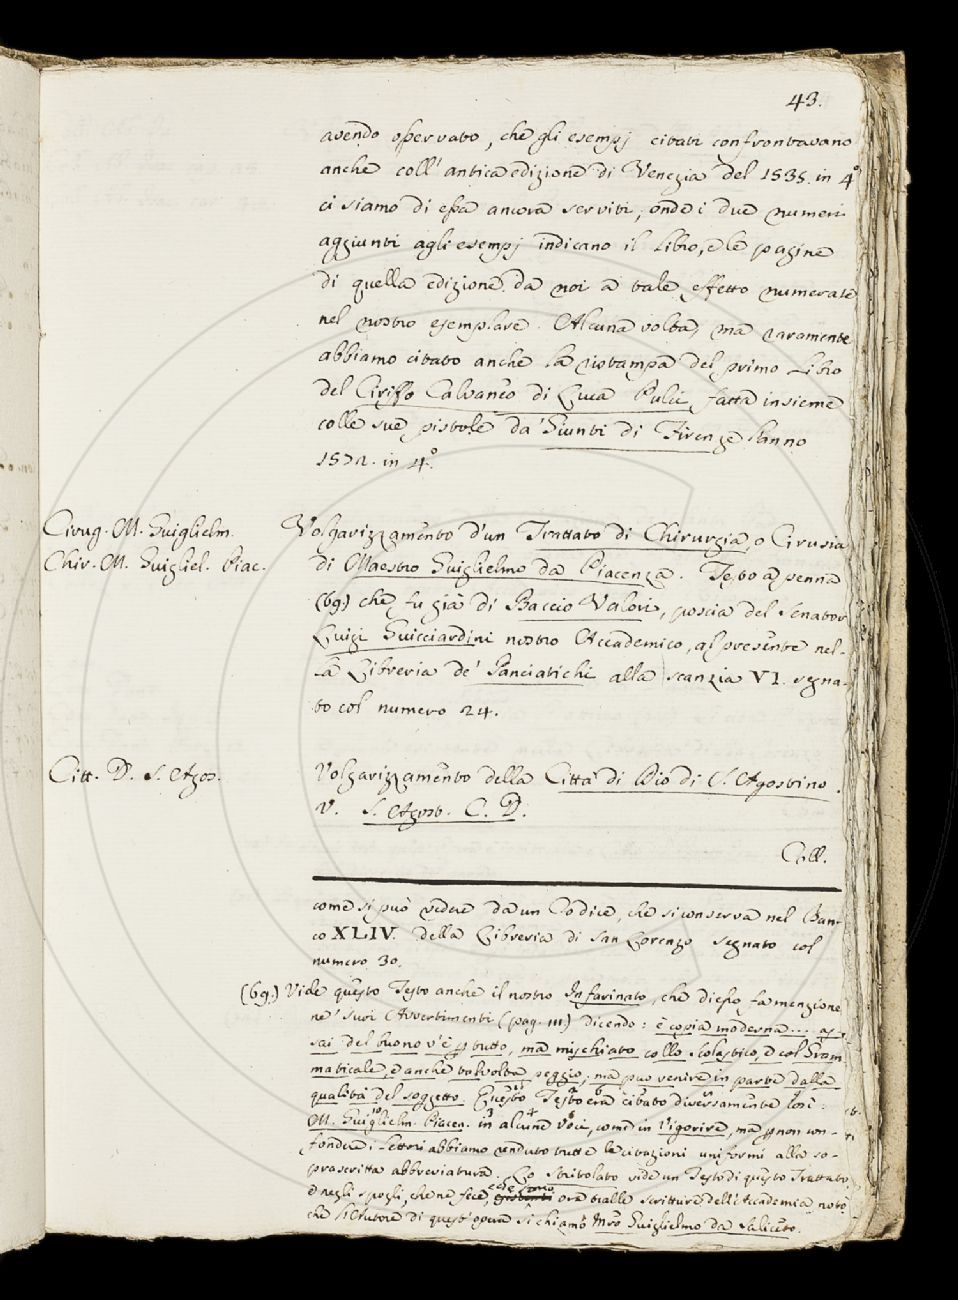 43.
avendo osservato, che gli esempj citati confrontavano
anche coll' antica edizione di Venezia del 1535. in 4°
ci siamo di essa ancora serviti, onde i due numeri
aggiunti agli esempj indicano il Libro, e le pagine
di quella edizione da noi a tale effetto numerate
nel nostro esemplare. Alcuna volta, ma raramente
abbiamo citato anche la ristampa del primo Libro
del Ciriffo Calvaneo di Luca Pulci fatta insieme
colle sue pistole da' Giunti di Firenze l'anno
1572. in 4°.
Cirug. M. Guiglielm.
Chir. M. Guigliel. Piac.
Volgarizzamento d'un Trattato di Chirurgia, o Cirusia
di Maestro Guiglielmo da Piacenza. Testo a penna
(69) che fu già di Baccio Valori, poscia del Senator
Luigi Guicciardini nostro Accademico, al presente nel-
la Libreria de' Panciatichi alla scanzia VI. segna-
to col numero 24.
Citt. D. S. Agos.
Volgarizzamento della Città di Dio di S. Agostino.
V. S. Agost. C. D.
Coll.
come si può vedere da un Codice, che si conserva nel Ban-
co XLIV. della Libreria di San Lorenzo segnato col
numero 30.
(69) Vide questo Testo anche il nostro Infarinato, che d'esso fa menzione
ne' suoi Avvertimenti (pag. 111) dicendo: è copia moderna... as-
sai del buono v'è per tutto, ma mischiato collo scolastico, e col Gram
maticale, e anche talvolta peggio; ma può venire in parte dalla
qualità del soggetto. Questo Testo era citato diversamente così:
M. Guiglielm. Piacen. in alcune voci, come in Vigorire, ma per non con-
fondere i Lettori abbiamo renduto tutte le citazioni uniformi alla so-
prascritta abbreviatura. Lo Stritolato vide un Testo di questo Trattato,
e negli spogli, che ne fece, che sono ora tralle scritture dell'Accademia notò
che l'Autore di quest'opera si chiamò Mro Guiglielmo da Saliceto.